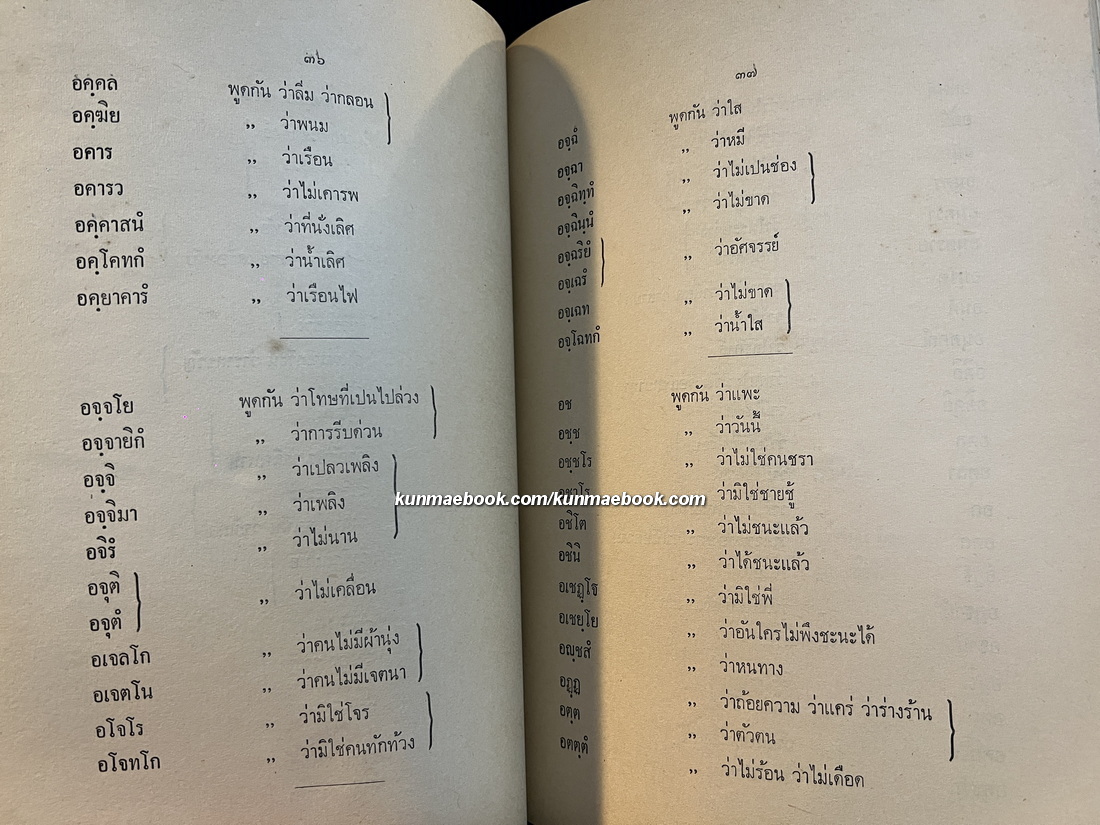 ๓๖
อคฺคล พูดกัน ว่าลิ่ม ว่ากลอน
อคฺฆิย ,, ว่าพนม
อคาร ,, ว่าเรือน
อคารว ,, ว่าไม่เคารพ
อคฺคาสนํ ,, ว่าที่นั่งเลิศ
อคฺโคทกํ ,, ว่าน้ำเลิศ
อคฺยาคารํ ,, ว่าเรือนไฟ
อจฺจโย พูดกัน ว่าโทษที่เปนไปล่วง
อจฺจายิกํ ,, ว่าการรีบด่วน
อจฺจิ ,, ว่าเปลวเพลิง
อจฺจิมา ,, ว่าเพลิง
อจิรํ ,, ว่าไม่นาน
อจุติ ,, ว่าไม่เคลื่อน
อจุตํ
อเจลโก ,, ว่าคนไม่มีผ้านุ่ง
อเจตโน ,, ว่าคนไม่มีเจตนา
อโจโร ,, ว่ามิใช่โจร
อโจทโก ,, ว่ามิใช่คนทักท้วง
๓๗
อจฺฉํ พูดกัน ว่าใส
อจฺฉา ,, ว่าหมี
อจฺฉิทฺทํ ,, ว่าไม่เปนช่อง
อจฺฉินฺนํ ,, ว่าไม่ขาด
อจฺฉริยํ ,, ว่าอัศจรรย์
อจฺเฉรํ
อจฺเฉท ,, ว่าไม่ขาด
อจฺโฉทกํ ,, ว่าน้ำใส
อช พูดกัน ว่าแพะ
อชฺช ,, ว่าวันนี้
อชฺชโร ,, ว่าไม่ใช่คนชรา
อชาโร ,, ว่ามิใช่ชายชู้
อชิโต ,, ว่าไม่ชนะแล้ว
อชินิ ,, ว่าได้ชนะแล้ว
อเชฏฺโฐ ,, ว่ามิใช่พี่
อเชยฺโย ,, ว่าอันใครไม่พึงชะนะได้
อญฺชสํ ,, ว่าหนทาง
อฏฺฏ ,, ว่าถ้อยความ ว่าแคร่ ว่าร่างร้าน
อตฺต ,, ว่าตัวตน
อตตฺตํ ,, ว่าไม่ร้อน ว่าไม่เดือด
kunmaebook.com/kunmaebook.com